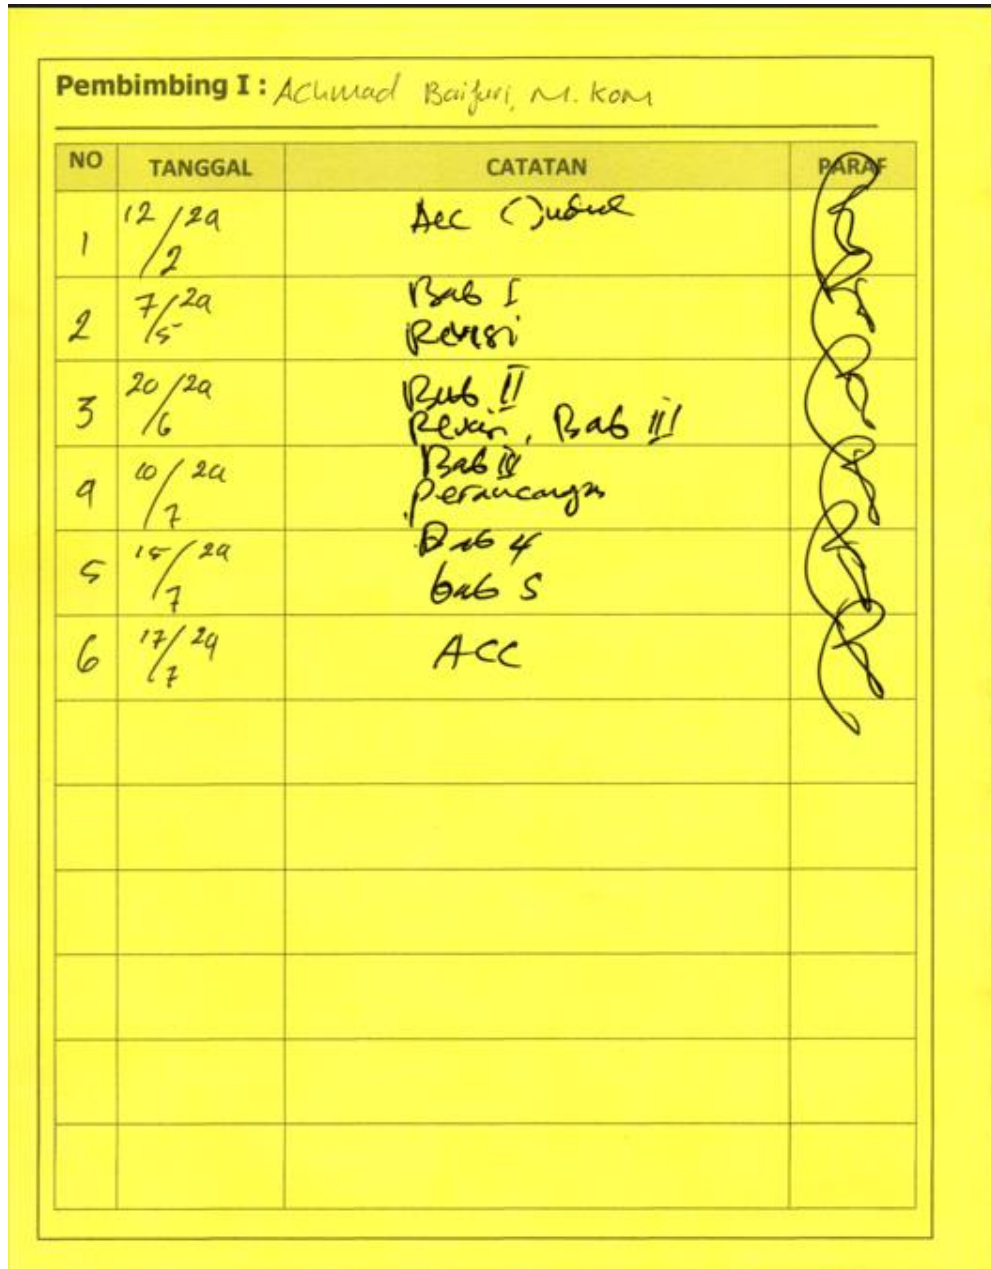 Pembimbing I : Achmad Baijuri, M. Kom
NO TANGGAL CATATAN PARAF
1 12/2 24 Acc Judul
2 7/5 24 Bab I
Revisi
3 20/6 24 Bab II
Revisi, Bab III
4 10/7 24 Bab IV
Perancangan
5 15/7 24 Bab 4
bab 5
6 17/7 24 ACC